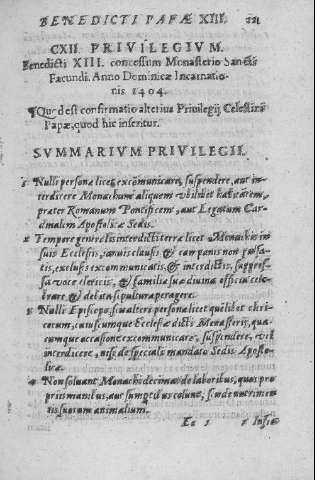 BENEDICTI PAPÆ XIII. 221
CXII. PRIVILEGIVM.
Benedicti XIII. concessum Monasterio Sancti
Facundi. Anno Dominicæ Incarnatio-
nis 1404.
¶Quod est confirmatio alterius Privilegij Celestini
Papæ, quod hic inseritur.
SVMMARIVM PRIVILEGII.
1 Nulli personæ licet excōmunicare, suspendere, aut in-
terdicere Monachum aliquem
præter Romanum Pontificem, aut Legatum Car-
dinalim Apostolicæ Sedis.
2 Tempore generalis interdicti terræ licet Monachis in
suis Ecclesijs, ianuis clausis & campanis non pulsa-
tis, exclusis excommunicatis, & interdictis, suppres-
sa voce clericis, & familiæ suæ divina officia cele-
brare & debita sepultura peragere.
3 Nulli Episcopo, sivè alteri personæ licet quēlibet cleri-
corum, cuiuscumque Ecclesiæ dicti Monasterij, qua-
cumque occasione excommunicare, suspendere, vel
interdicere, nisi de speciali mandato Sedis Aposto-
licæ.
4 Non solvant Monachi decimas de laboribus, quos pro
prijs manibus, aut sumptibus colunt, sivè de nutrimen
tis suorum animalium.
Ee 5